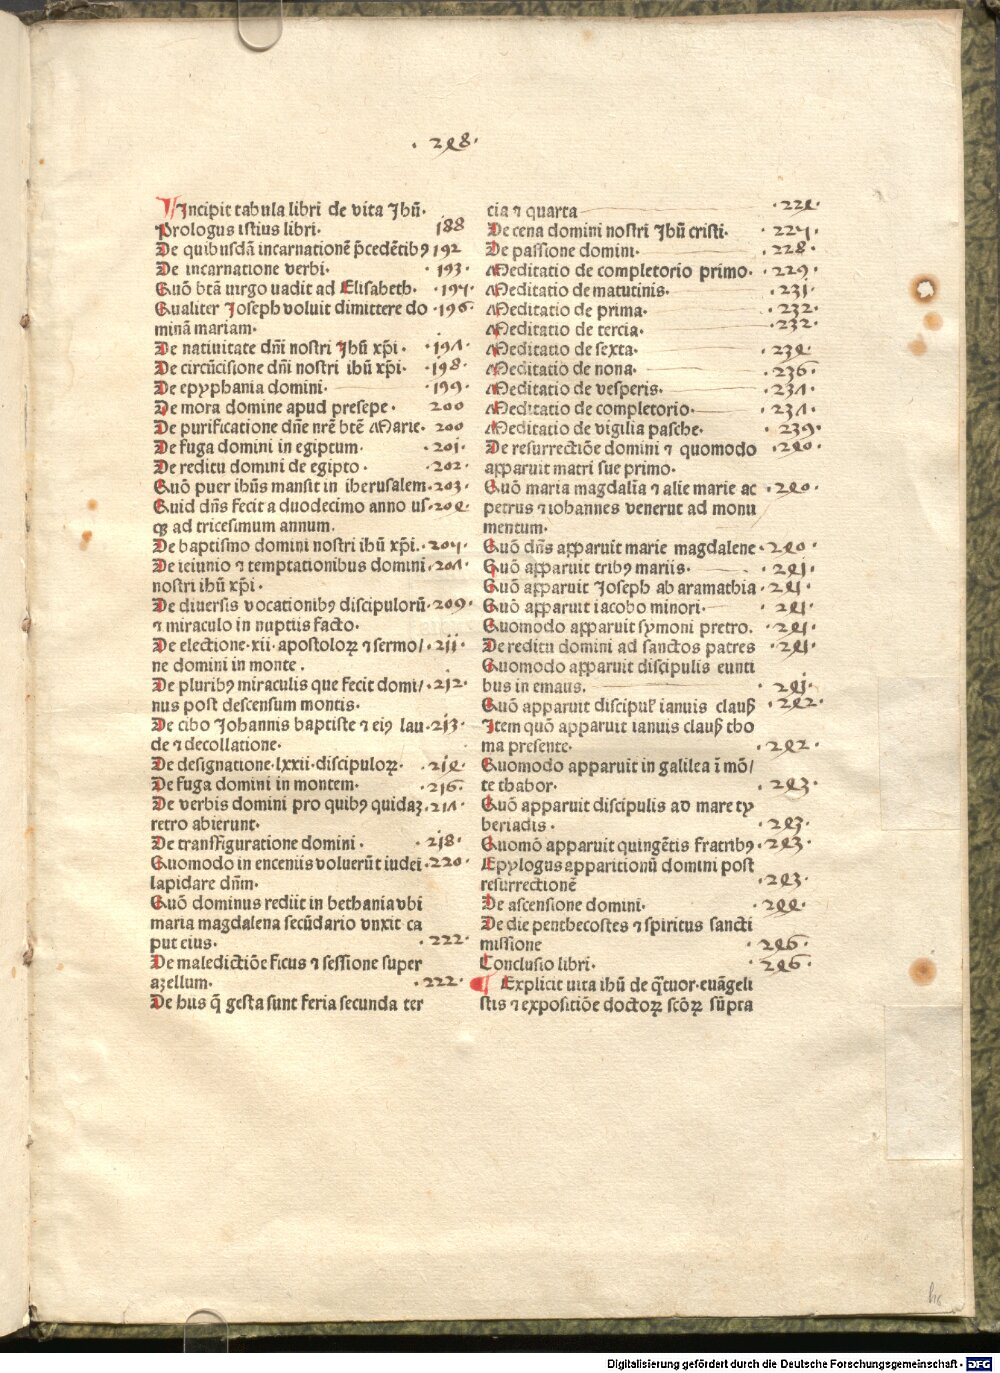 · 248 ·
Incipit tabula libri de vita Jhū·
Prologus istius libri· 188
De quibusdā incarnationē p̄cedētibꝰ 192
De incarnatione verbi· · 193 ·
Quō btā uirgo uadit ad Elisabeth· · 195 ·
Qualiter Joseph voluit dimittere do · 196 ·
minā mariam·
De natiuitate dñi nostri Jhū xp̄i · · 197 ·
De circūcisione dñi nostri ihū xp̄i · · 198 ·
De epyphania domini· · 199 ·
De mora domine apud presepe · 200
De purificatione dñe nr̄e btē Marie· 200
De fuga domini in egiptum· · 201 ·
De reditu domini de egipto · · 202 ·
Quō puer ihūs mansit in iherusalem · 203 ·
Quid dñs fecit a duodecimo anno us · 204 ·
qꝫ ad tricesimum annum.
De baptismo domini nostri ihū xp̄i. · 205 ·
De ieiunio ⁊ temptationibus domini · 207 ·
nostri ihū xp̄i ·
De diuersis vocationibꝰ discipulorū · 209 ·
⁊ miraculo in nuptiis facto·
De electione·xii·apostoloꝝ ⁊ sermo/ · 211 ·
ne domini in monte .
De pluribꝰ miraculis que fecit domi/ · 212 ·
nus post descensum montis·
De cibo Johannis baptiste ⁊ eiꝰ lau · 213 ·
de ⁊ decollatione·
De designatione·lxxii·discipuloꝝ· · 214 ·
De fuga domini in montem· · 216 ·
De verbis domini pro quibꝰ quidaꝫ · 217 ·
retro abierunt·
De transfiguratione domini · · 218 ·
Quomodo in enceniis voluerūt iudei · 220 ·
lapidare dñm·
Quō dominus rediit in bethania vbi
maria magdalena secūdario vnxit ca
put eius· · 222 ·
De maledictiōe ficus ⁊ sessione super
azellum· · 222 ·
De hus q̄ gesta sunt feria secunda ter
cia ⁊ quarta · 224 ·
De cena domini nostri Jhū cristi· · 225 ·
De passione domini· · 228 ·
Meditatio de completorio primo· · 229 ·
Meditatio de matutinis· · 231 ·
Meditatio de prima· · 232 ·
Meditatio de tercia· · 232 ·
Meditatio de sexta· · 234 ·
Meditatio de nona· · 236 ·
Meditatio de vesperis· · 237 ·
Meditatio de completorio· · 237 ·
Meditatio de vigilia pasche· · 239 ·
De resurrectiōe domini ⁊ quomodo · 240 ·
apparuit matri sue primo·
Quō maria magdalīa ⁊ alie marie ac · 240 ·
petrus ⁊ iohannes venerūt ad monu
mentum·
Quō dñs apparuit marie magdalene · 240 ·
Quō apparuit tribꝰ mariis· · 241 ·
Quō apparuit Joseph ab aramathia · 241 ·
Quō apparuit iacobo minori· · 241 ·
Quomodo apparuit symoni pretro. · 241 ·
De reditu domini ad sanctos patres · 241 ·
Quomodo apparuit discipulis eunti
bus in emaus. · 241 ·
Quō apparuit discipul' ianuis clauß · 242 ·
Item quō apparuit ianuis clauß tho
ma presente· · 242 ·
Quomodo apparuit in galilea ī mō/
te thabor· · 243 ·
Quō apparuit discipulis ad mare ty
beriadis · · 243 ·
Quomō apparuit quingētis fratribꝰ · 243 ·
Epylogus apparitionū domini post
resurrectionē · 243 ·
De ascensione domini· · 244 ·
De die penthecostes ⁊ spiritus sancti
missione · 246 ·
Conclusio libri· · 246 ·
¶ Explicit uita ihū de q̄tuor·euāgeli
stis ⁊ expositiōe doctoꝝ scōꝝ sūpta
Digitalisierung gefördert durch die Deutsche Forschungsgemeinschaft - DFG